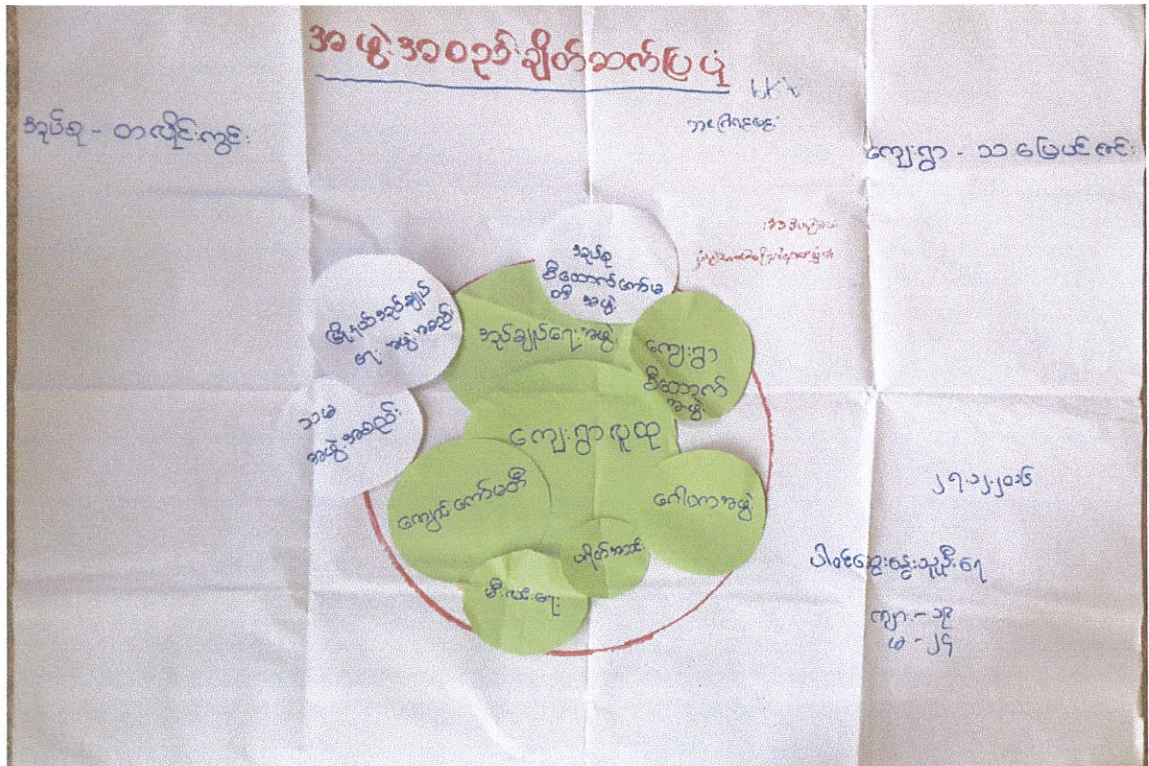 အဖွဲ့အစည်းချိတ်ဆက်ပြပုံ
အုပ်စု - တလိုင်းကွင်း
ကျေးရွာ - သပြေဇင်း
အုပ်စု
စီထောက်ကော်မ
တီ အဖွဲ့
မြို့နယ်အုပ်ချုပ်
ရေး အဖွဲ့အစည်း
အုပ်ချုပ်ရေးအဖွဲ့
ကျေးရွာ
စီထောက်
အဖွဲ့
သမ
အဖွဲ့အစည်း
ကျေးရွာလူထု
ကျောင်းကော်မတီ
ဂေါပကအဖွဲ့
ပရိတ်အသင်း
မီးလင်းရေး
၂၇.၁၂.၂၀၁၆
ပါဝင်ဆွေးနွေးသူဦးရေ
ကျား - ၁၃
မ - ၂၄